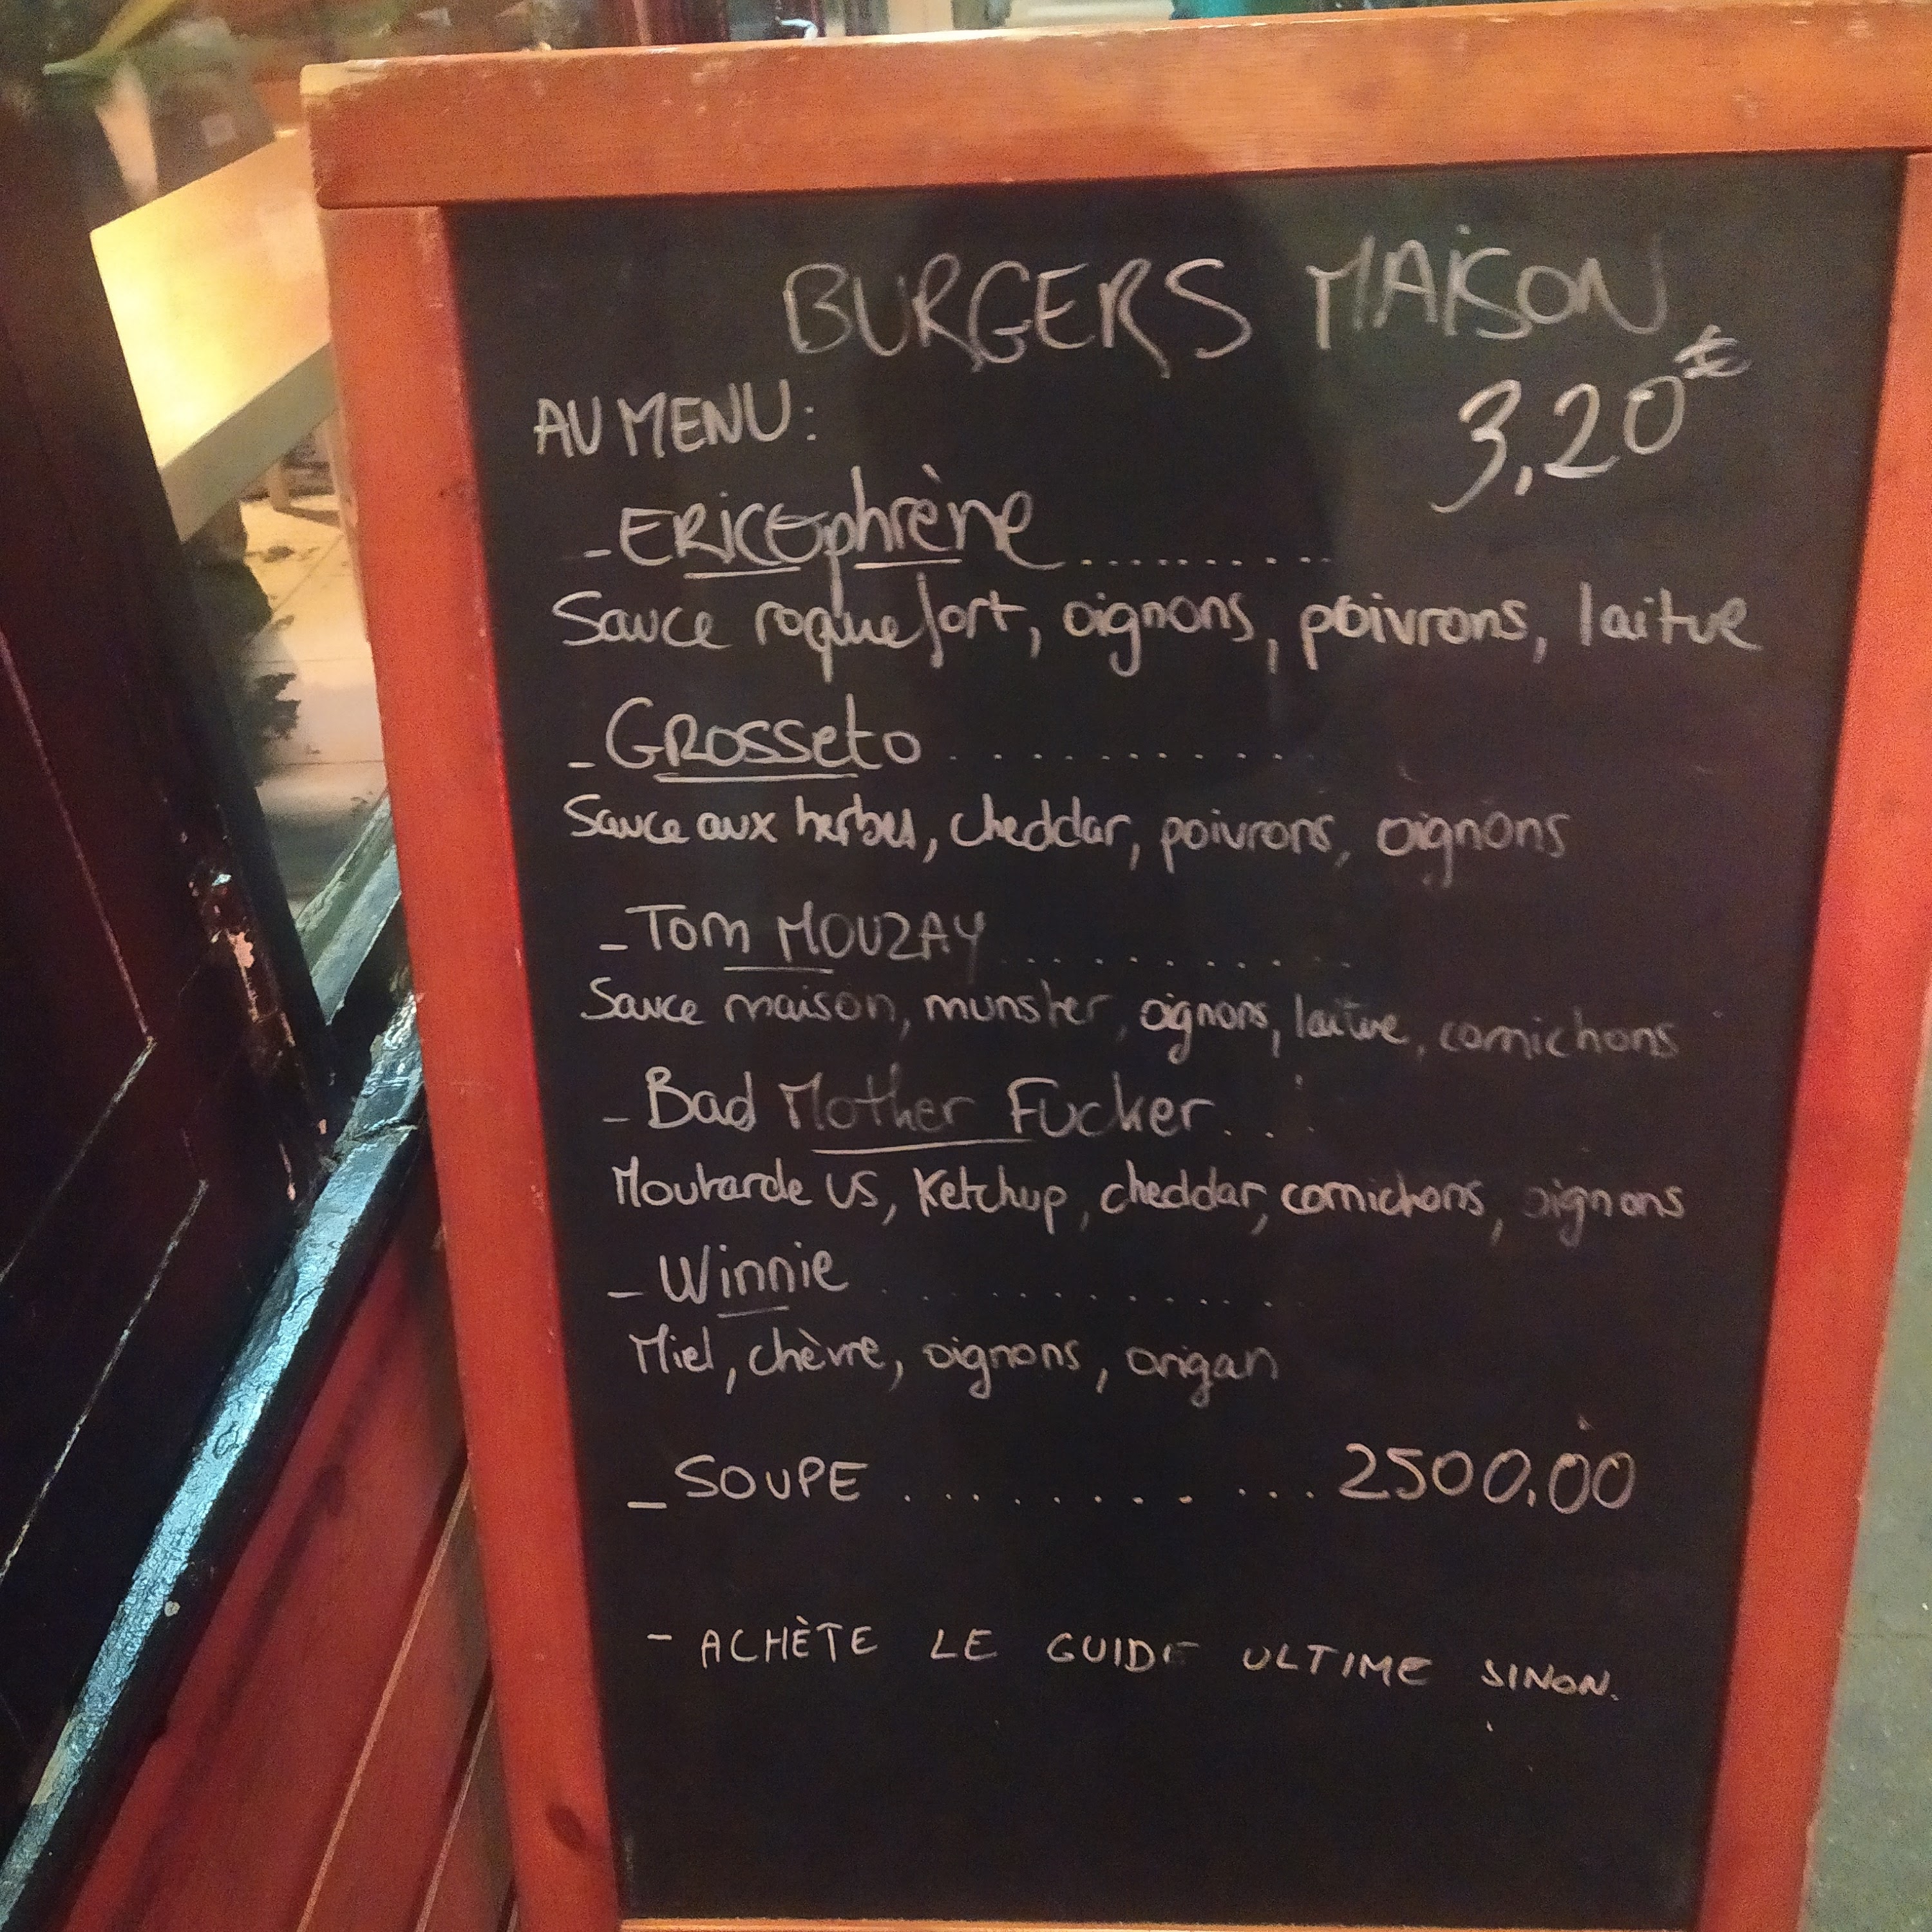 BURGERS MAISON
AU MENU: 3,20€
- ERICEphrène..........
Sauce roquefort, oignons, poivrons, laitue
- GROSSEto . . . . . . . . . . .
Sauce aux herbes, cheddar, poivrons, oignons
- Tom MOUZAY . . . . . . . . . . .
Sauce maison, munster, oignons, laitue, cornichons
- Bad Mother Fucker. . .
Moutarde US, Ketchup, cheddar, cornichons, oignons
- Winnie . . . . . . . . . . . .
Miel, chèvre, oignons, origan
_ SOUPE . . . . . . . . . . . . 2500.00
- ACHÈTE LE GUIDE ULTIME SINON.